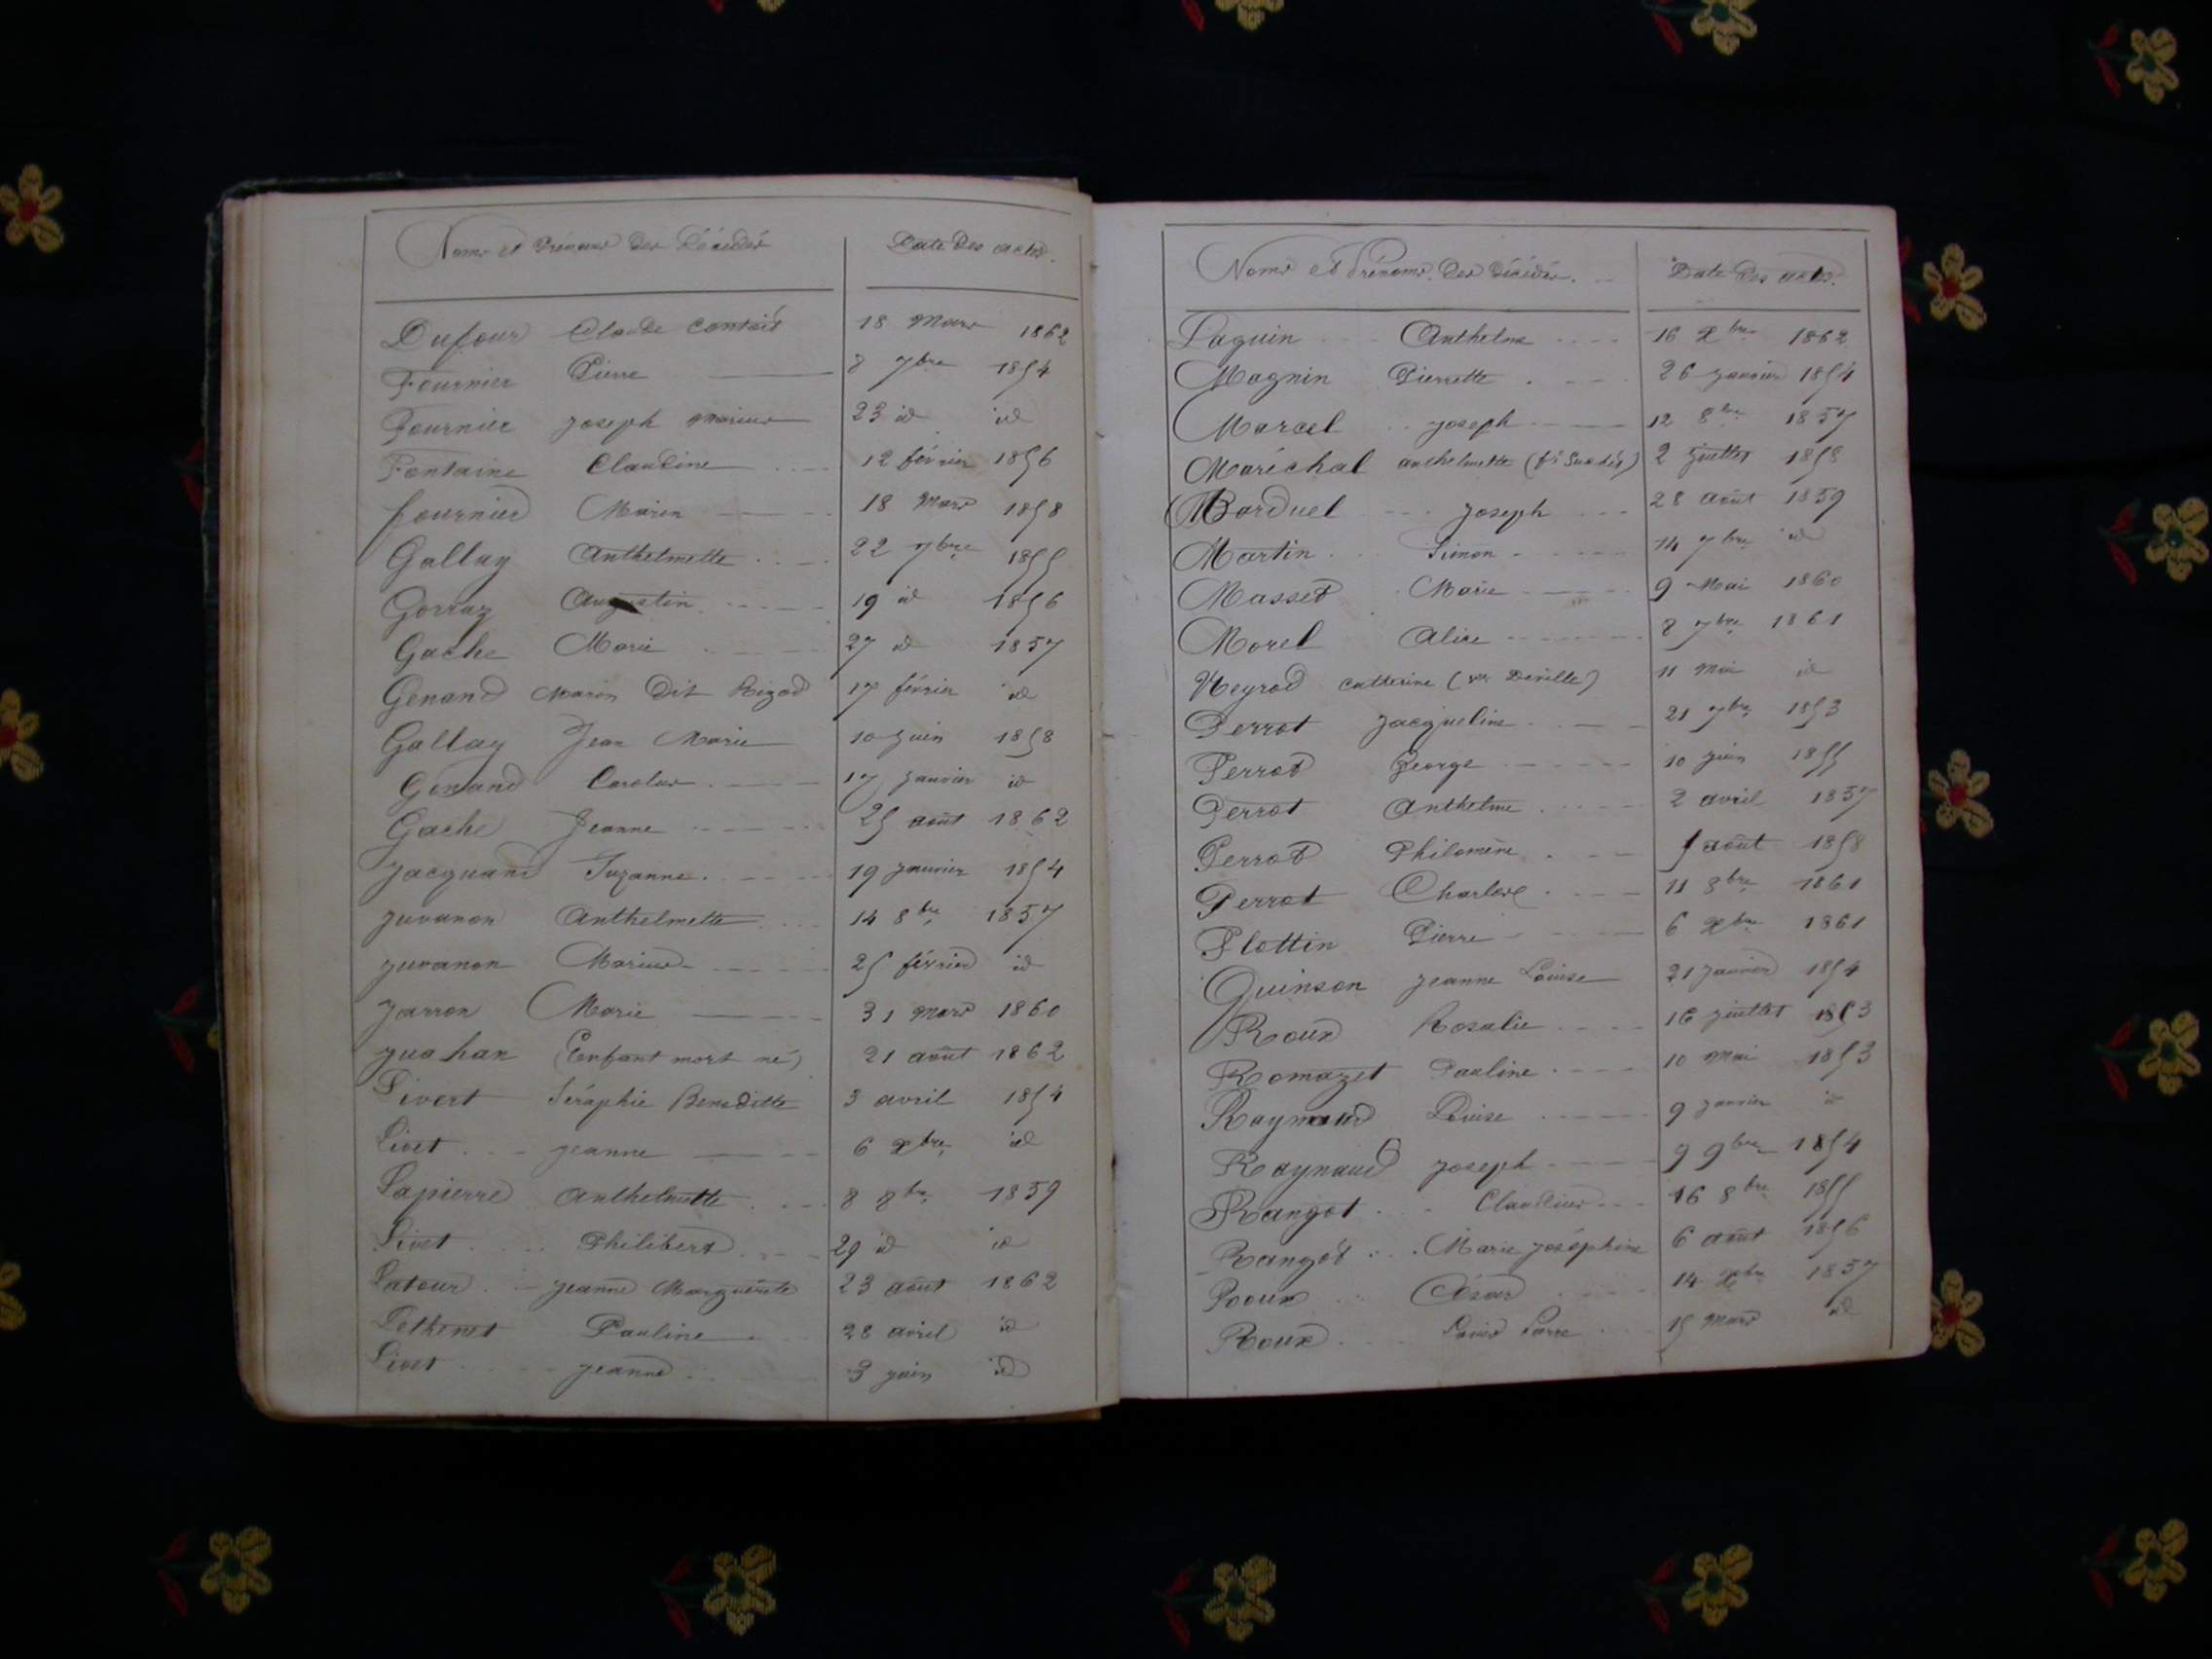 Noms et Prénoms des Décédés Date des actes.
Dufour Claude 18 Mars 1862
Fournier Pierre 8 7bre 1854
Fournier Joseph Marius 23 id id
Fontaine Claudine 12 février 1856
fournier Marin 18 Mars 1858
Gallay Anthelmette 22 7bre 1855
Gorraz Augustin 19 id 1856
Gache Marie 27 id 1857
Genand Marin Dit Rigod 17 février id
Gallay Jean Marie 10 juin 1858
Genand 17 janvier id
Gache Jeanne 25 août 1862
Jacquand Suzanne 19 janvier 1854
Juvanon Anthelmette 14 8bre 1857
Juvanon Marius 25 février id
Jarron Marie 31 Mars 1860
Juahan (Enfant mort né) 21 août 1862
Livert Séraphie Beneditte 3 avril 1854
Livet jeanne 6 xbre id
Lapierre Anthelmette 8 8bre 1859
Livet Philibert 29 id id
Latour jeanne Marguerite 23 août 1862
Pauline 28 avril id
Livet jeanne 3 juin id
Noms et Prénoms des décédés. Date des actes.
Laguin Anthelme 16 xbre 1862
Magnin Pierrette 26 janvier 1854
Marcel joseph 12 8bre 1857
Maréchal anthelmette 2 juillet 1858
Marduel Joseph 28 août 1859
Martin Simon 14 7bre id
Masset Marie 9 Mai 1860
Morel Alice 8 7bre 1861
Neyrod catherine (vve Deville) 11 Mai id
Perrot Jacqueline 21 7bre 1853
Perrot George 10 juin 1855
Perrot Anthelme 2 avril 1857
Perrot Philomène 5 août 1858
Perrot Charles 11 8bre 1861
Plottin Pierre 6 xbre 1861
Quinson jeanne Louise 21 janvier 1854
Roux Rosalie 16 juillet 1853
Romazet Pauline 10 Mai 1853
Raymand Louise 9 janvier id
Raynaud joseph 9 9bre 1854
Rangot Claudius 16 8bre 1855
Rangot Marie joséphine 6 août 1856
Roux César 14 xbre 1857
Roux Louis 15 Mars id